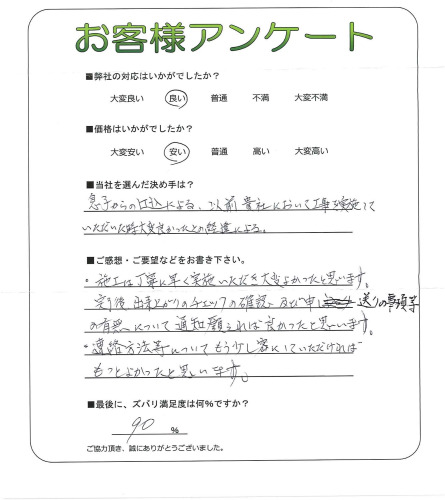 お客様アンケート
■弊社の対応はいかがでしたか?
大変良い 良い 普通 不満 大変不満
■価格はいかがでしたか?
大変安い 安い 普通 高い 大変高い
■当社を選んだ決め手は?
息子からの口込による、以前貴社において工事実施して
いただいた時大変良かったとの経緯による。
■ご感想・ご要望などをお書き下さい。
・施工は丁寧に早く実施いただき大変よかったと思います。
完了後、出来上がりのチェックの確認、及び申し送りの事項等
の有無について通知願えれば良かったと思います。
・連絡方法等についてもう少し密にしていただければ
もっとよかったと思います。
■最後に、ズバリ満足度は何%ですか?
90 %
ご協力頂き、誠にありがとうございました。